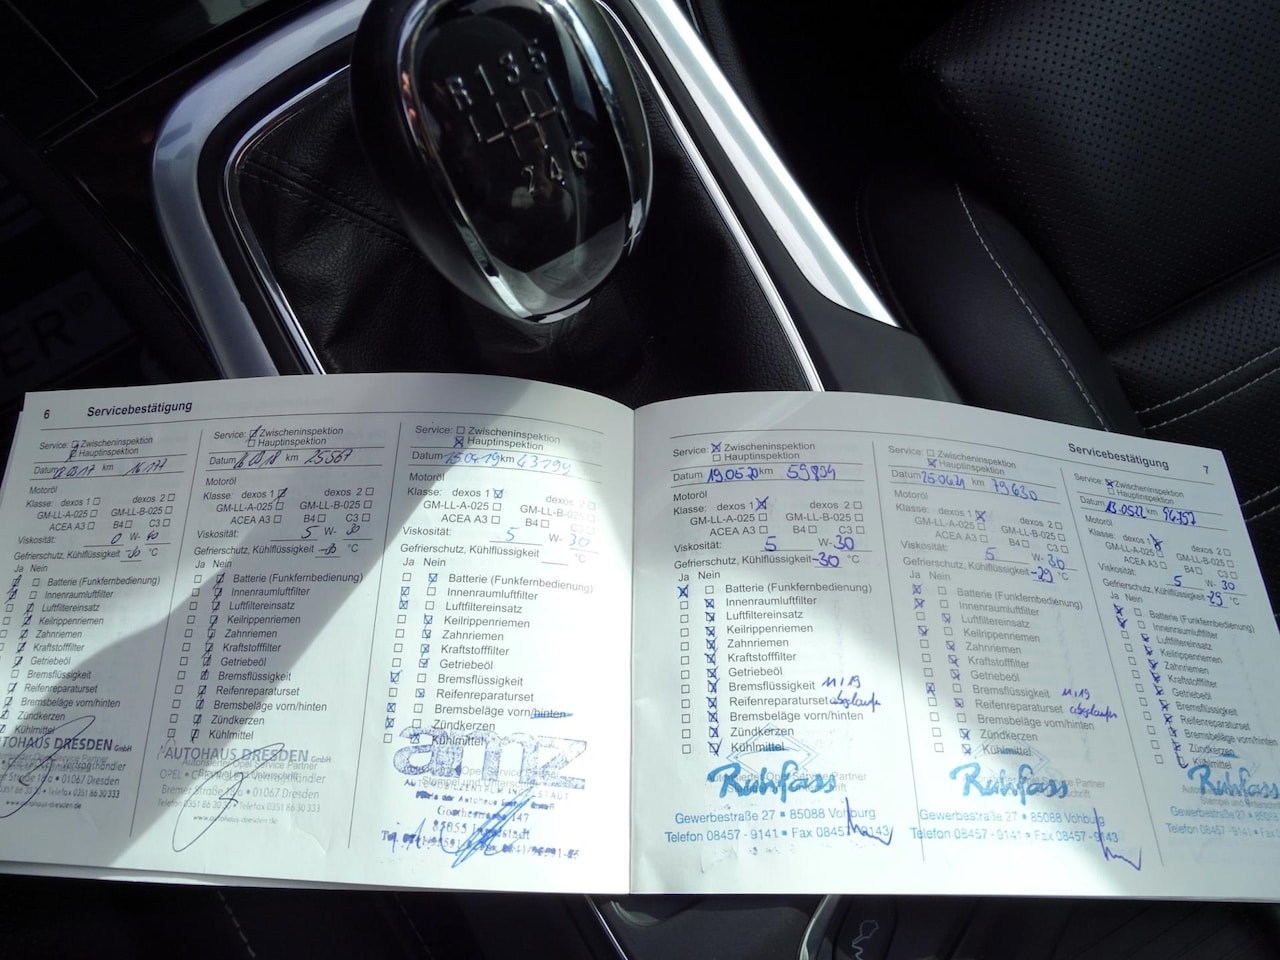 R 1 3 5
2 4 6
ER
6 Servicebestätigung
Service: Zwischeninspektion
Hauptinspektion
Datum km 16177
Motoröl
Klasse: dexos 1 dexos 2
GM-LL-A-025 GM-LL-B-025
ACEA A3 B4 C3
Viskosität: 0 W-
Gefrierschutz, Kühlflüssigkeit -30 °C
Ja Nein
Batterie (Funkfernbedienung)
Innenraumluftfilter
Luftfiltereinsatz
Keilrippenriemen
Zahnriemen
Kraftstofffilter
Getriebeöl
Bremsflüssigkeit
Reifenreparaturset
Bremsbeläge vorn/hinten
Zündkerzen
Kühlmittel
AUTOHAUS DRESDEN GmbH
01067 Dresden
www.autohaus-dresden.de
Service: Zwischeninspektion
Hauptinspektion
Datum km 25567
Motoröl
Klasse: dexos 1 dexos 2
GM-LL-A-025 GM-LL-B-025
ACEA A3 B4 C3
Viskosität: 5 W- 30
Gefrierschutz, Kühlflüssigkeit -30 °C
Ja Nein
Batterie (Funkfernbedienung)
Innenraumluftfilter
Luftfiltereinsatz
Keilrippenriemen
Zahnriemen
Kraftstofffilter
Getriebeöl
Bremsflüssigkeit
Reifenreparaturset
Bremsbeläge vorn/hinten
Zündkerzen
Kühlmittel
AUTOHAUS DRESDEN GmbH
01067 Dresden
www.autohaus-dresden.de
Service: Zwischeninspektion
Hauptinspektion
Datum 15.04.19 km 43199
Motoröl
Klasse: dexos 1 dexos 2
GM-LL-A-025 GM-LL-B-025
ACEA A3 B4 C3
Viskosität: 5 W- 30
Gefrierschutz, Kühlflüssigkeit °C
Ja Nein
Batterie (Funkfernbedienung)
Innenraumluftfilter
Luftfiltereinsatz
Keilrippenriemen
Zahnriemen
Kraftstofffilter
Getriebeöl
Bremsflüssigkeit
Reifenreparaturset
Bremsbeläge vorn/hinten
Zündkerzen
Kühlmittel
amz
Servicebestätigung 7
Service: Zwischeninspektion
Hauptinspektion
Datum 19.05.20 km 59894
Motoröl
Klasse: dexos 1 dexos 2
GM-LL-A-025 GM-LL-B-025
ACEA A3 B4 C3
Viskosität: 5 W- 30
Gefrierschutz, Kühlflüssigkeit -30 °C
Ja Nein
Batterie (Funkfernbedienung)
Innenraumluftfilter
Luftfiltereinsatz
Keilrippenriemen
Zahnriemen
Kraftstofffilter
Getriebeöl
Bremsflüssigkeit
Reifenreparaturset 11.19 abgelaufen
Bremsbeläge vorn/hinten
Zündkerzen
Kühlmittel
Ruhfass
Gewerbestraße 27 • 85088 Vohburg
Telefon 08457 - 9141 • Fax 08457 - 9143
Service: Zwischeninspektion
Hauptinspektion
Datum 25.06.21 km 79630
Motoröl
Klasse: dexos 1 dexos 2
GM-LL-A-025 GM-LL-B-025
ACEA A3 B4 C3
Viskosität: 5 W- 30
Gefrierschutz, Kühlflüssigkeit -29 °C
Ja Nein
Batterie (Funkfernbedienung)
Innenraumluftfilter
Luftfiltereinsatz
Keilrippenriemen
Zahnriemen
Kraftstofffilter
Getriebeöl
Bremsflüssigkeit
Reifenreparaturset 11.19 abgelaufen
Bremsbeläge vorn/hinten
Zündkerzen
Kühlmittel
Ruhfass
Gewerbestraße 27 • 85088 Vohburg
Telefon 08457 - 9141 • Fax 08457 - 9143
Service: Zwischeninspektion
Hauptinspektion
Datum 13.05.22 km
Motoröl
Klasse: dexos 1 dexos 2
GM-LL-A-025 GM-LL-B-025
ACEA A3 B4 C3
Viskosität: 5 W- 30
Gefrierschutz, Kühlflüssigkeit -29 °C
Ja Nein
Batterie (Funkfernbedienung)
Innenraumluftfilter
Luftfiltereinsatz
Keilrippenriemen
Zahnriemen
Kraftstofffilter
Getriebeöl
Bremsflüssigkeit
Reifenreparaturset
Bremsbeläge vorn/hinten
Zündkerzen
Kühlmittel
Ruhfass
Gewerbestraße 27 • 85088
Telefon 08457 - 9141 • Fax